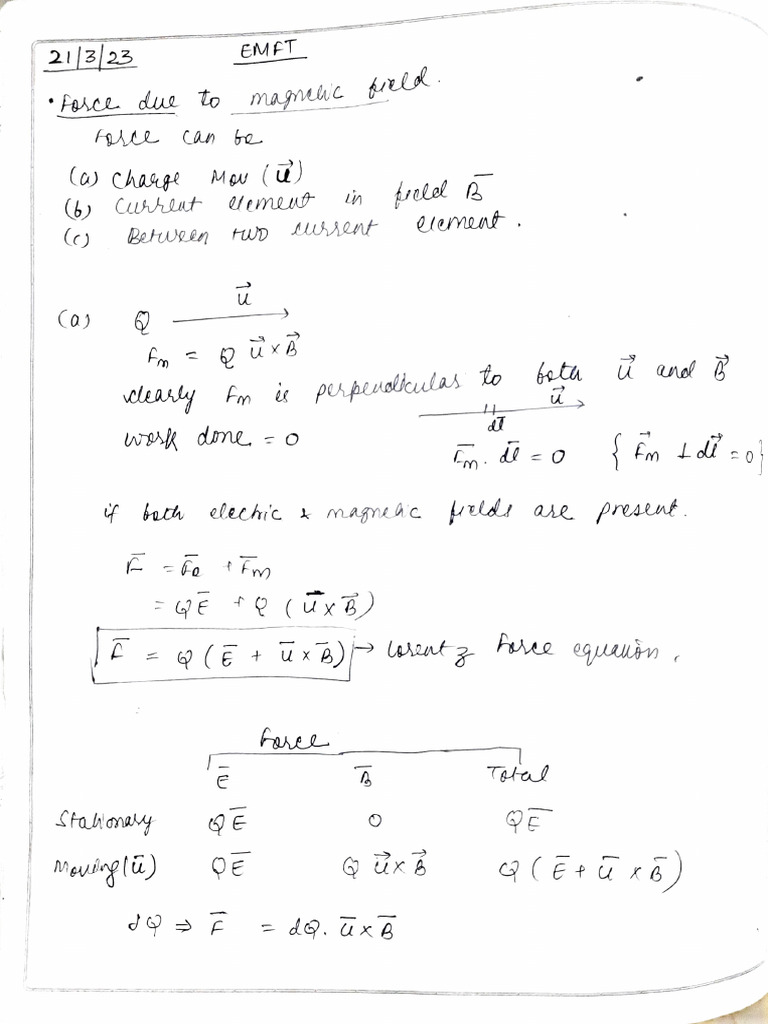 21/3/23 EMFT
• Force due to magnetic field.
Force can be
(a) Charge Mov (u⃗)
(b) Current element in field B̅
(c) Between two current element.
(a) Q u⃗
Fm = Q u⃗ × B⃗
clearly Fm is perpendicular to both u⃗ and B⃗
u⃗
dl̅
work done = 0 F̅m . dl̅ = 0 { F⃗m ⊥ dl⃗ = 0}
if both electric & magnetic fields are present.
F̅ = F̅e + F̅m
= QE̅ + Q (u̅ × B⃗)
F̅ = Q (E̅ + u̅ × B̅) → Lorentz Force equation.
Force
E̅ B̅ Total
Stationary QE̅ 0 QE̅
Moving(u̅) QE̅ Q u⃗ × B⃗ Q ( E̅ + u̅ × B̅ )
dQ ⇒ F̅ = dQ. u̅ × B̅